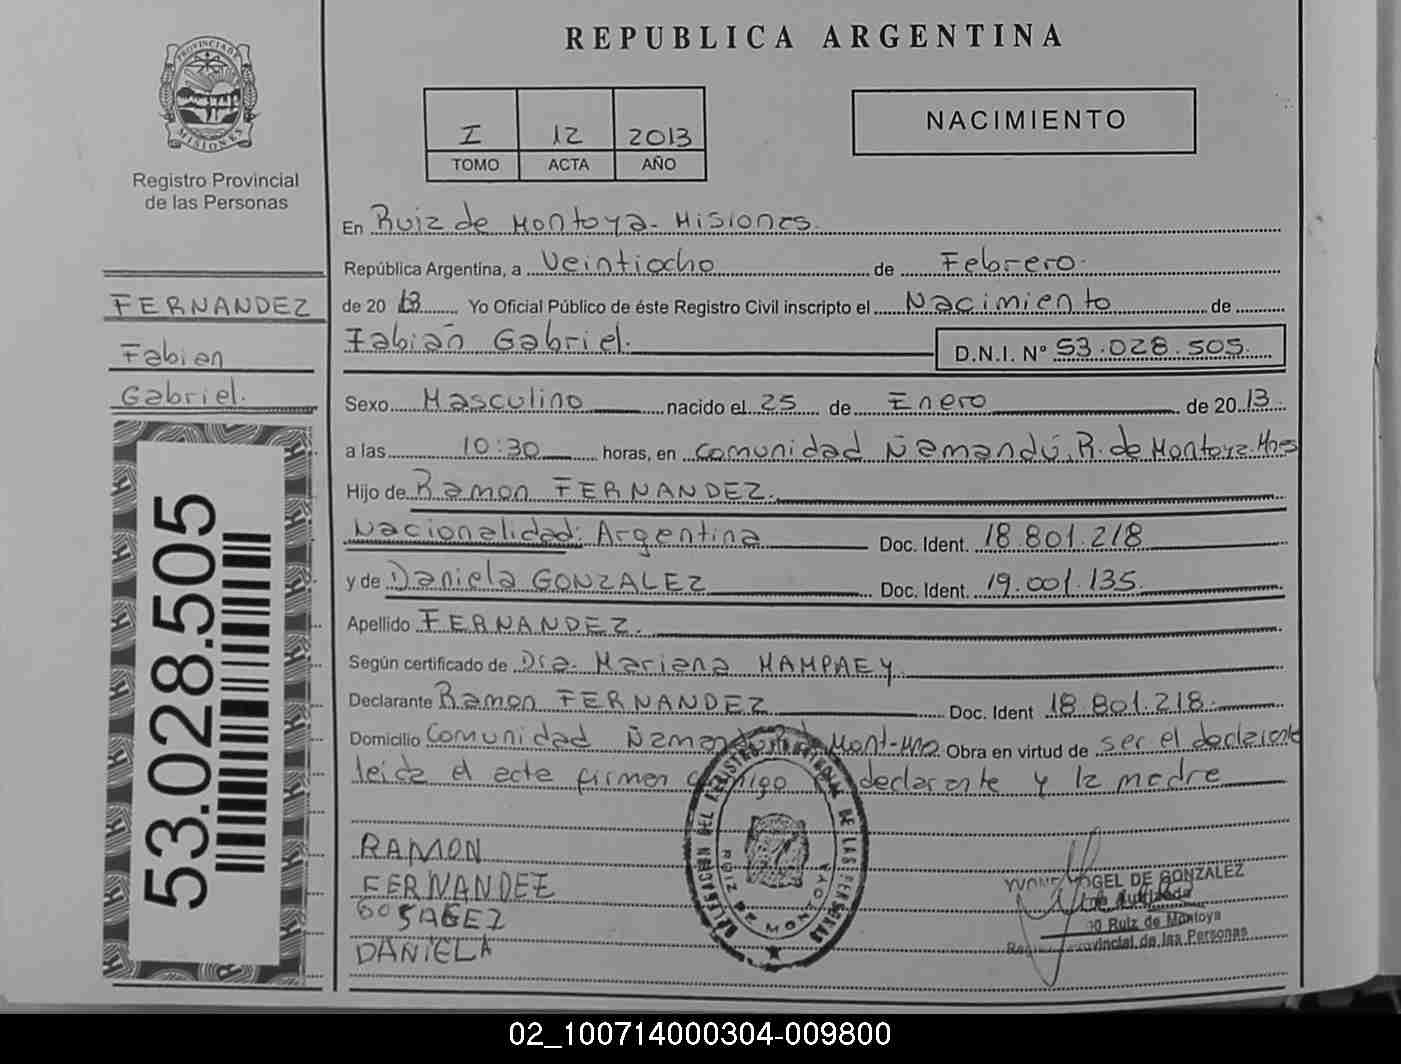 PROVINCIA DE
MISIONES
Registro Provincial
de las Personas
FERNANDEZ
Fabian
Gabriel.
53.028.505
REPUBLICA ARGENTINA
I 12 2013
TOMO ACTA AÑO
NACIMIENTO
En Ruiz de Montoya - Misiones.
República Argentina, a Veintiocho de Febrero.
de 2013 Yo Oficial Público de éste Registro Civil inscripto el Nacimiento de
Fabián Gabriel. D.N.I. N° 53.028.505.
Sexo Masculino nacido el 25 de Enero de 2013
a las 10:30 horas, en Comunidad Ñamandú. R. de Montoya. Mnes
Hijo de Ramon FERNANDEZ.
Nacionalidad: Argentina Doc. Ident. 18.801.218
y de Daniela GONZALEZ Doc. Ident. 19.001.135.
Apellido FERNANDEZ.
Según certificado de Dra. Mariana MAMPAEY.
Declarante Ramon FERNANDEZ Doc. Ident 18.801.218.
Domicilio Comunidad Ñamandú R. Mont-Mno Obra en virtud de ser el declarante
leída el acta firman conmigo el declarante y la madre
RAMON
FERNANDEZ
GOSAGEZ
DANIELA
DELEGACION DEL REGISTRO PROVINCIAL DE LAS PERSONAS
RUIZ DE MONTOYA
YVONE VOGEL DE GONZALEZ
Ruiz de Montoya
Registro Provincial de las Personas
02_100714000304-009800